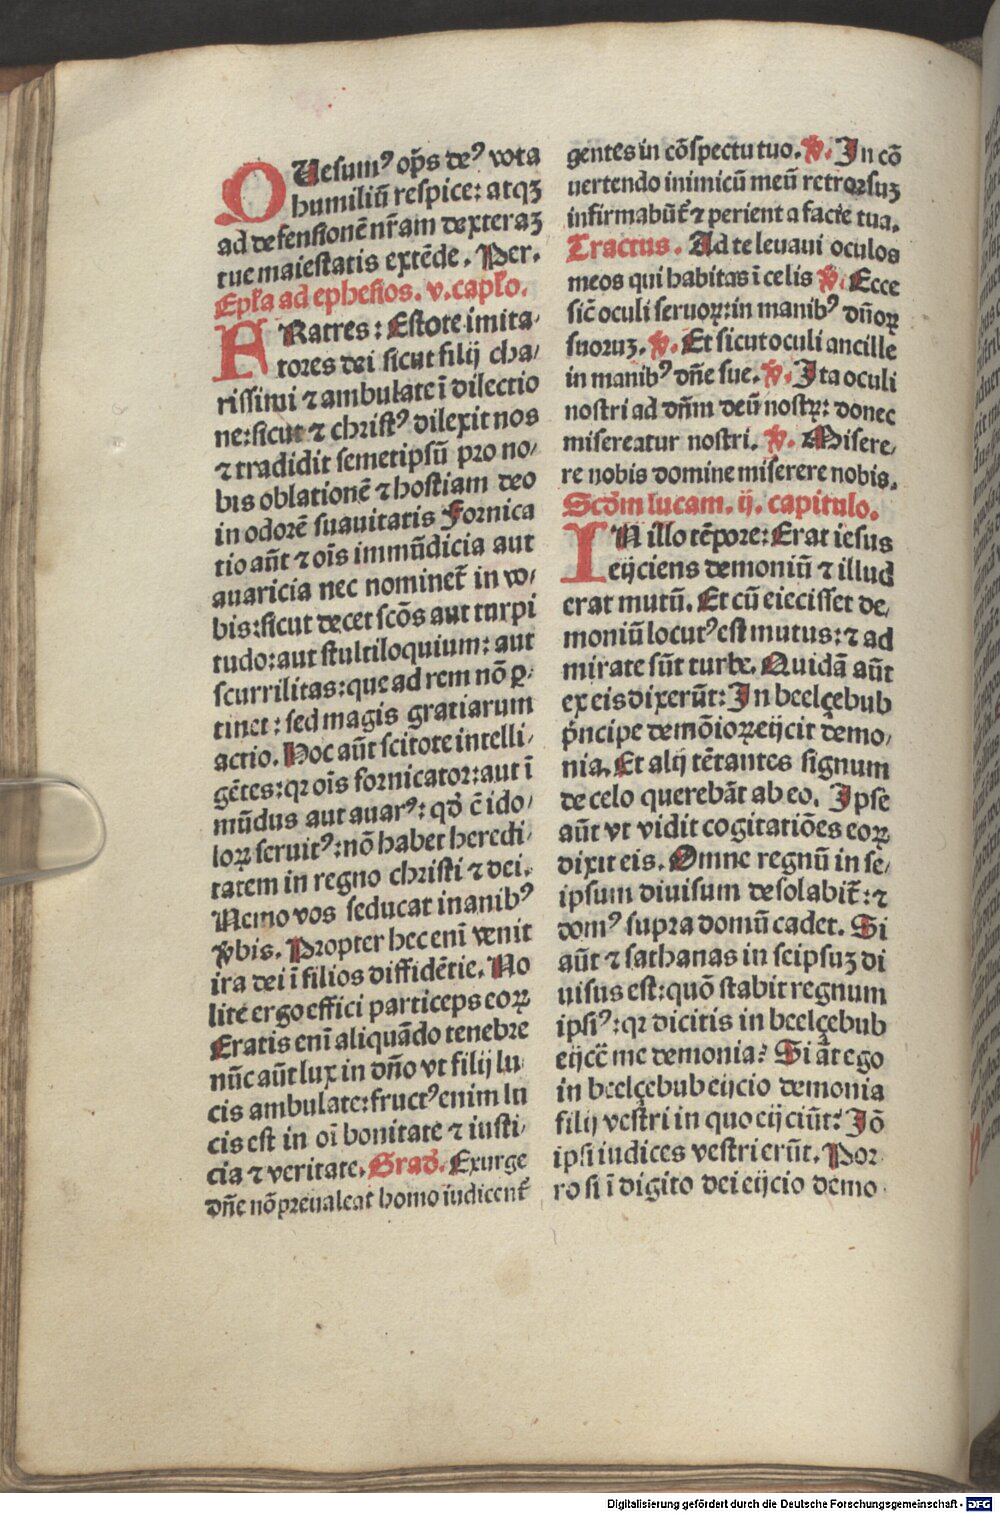 QUesumꝰ op̄s deꝰ vota
humiliū respice: atqꝫ
ad defensionē nr̄am dexteraꝫ
tue maiestatis extēde. Per.
Ep̄la ad ephesios. v. cap̄lo.
FRatres: Estote imita⸗
tores dei sicut filij cha⸗
rissimi ⁊ ambulate ī dilectio
ne: sicut ⁊ christꝰ dilexit nos
⁊ tradidit semetipsū pro no⸗
bis oblationē ⁊ hostiam deo
in odorē suauitatis Fornica
tio aūt ⁊ oīs immūdicia aut
auaricia nec nominet̄ in vo⸗
bis: sicut decet scōs aut turpi
tudo: aut stultiloquium: aut
scurrilitas: que ad rem nō ꝑ⸗
tinet: sed magis gratiarum
actio. Hoc aūt scitote intelli⸗
gētes: qr oīs fornicator: aut ī
mūdus aut auarꝰ: qd̄ ē ido⸗
loꝝ seruitꝰ: nō habet heredi⸗
tatem in regno christi ⁊ dei.
Nemo vos seducat inanibꝰ
v̄bis. Propter hec enī venit
ira dei ī filios diffidētie. No
lite ergo effici particeps eoꝝ
Eratis enī aliquādo tenebre
nūc aūt lux in dn̄o vt filij lu
cis ambulate: fructꝰ enim lu
cis est in oī bonitate ⁊ iusti⸗
cia ⁊ veritate. Grad̄. Exurge
dn̄e nō preualeat homo iudicent̄
gentes in cōspectu tuo. ℣. In cō
uertendo inimicū meū retrorsuꝫ
infirmabūt̄ ⁊ perient a facie tua.
Tractus. Ad te leuaui oculos
meos qui habitas ī celis ℣. Ecce
sic̄ oculi seruoꝝ: in manibꝰ dn̄oꝝ
suoruꝫ. ℣. Et sicut oculi ancille
in manibꝰ dn̄e sue. ℣. Ita oculi
nostri ad dn̄m deū nostꝝ: donec
misereatur nostri. ℣. Misere⸗
re nobis domine miserere nobis.
Scd̄m lucam. ij. capitulo.
IN illo tēpore: Erat iesus
eijciens demoniū ⁊ illud
erat mutū. Et cū eiecisset de⸗
moniū locutꝰ est mutus: ⁊ ad
mirate sūt turbe. Quidā aūt
ex eis dixerūt: In beelçebub
pͥncipe demōioꝝ eijcit demo⸗
nia. Et alij tētantes signum
de celo querebāt ab eo. Ipse
aūt vt vidit cogitatiōes eoꝝ
dixit eis. Omne regnū in se⸗
ipsum diuisum desolabit̄: ⁊
domꝰ supra domū cadet. Si
aūt ⁊ sathanas in seipsuꝫ di
uisus est: quō stabit regnum
ipsiꝰ: qr dicitis in beelçebub
eijcē me demonia? Si āt ego
in beelçebub eijcio demonia
filij vestri in quo eijciūt: Iō
ipsi iudices vestri erūt. Por
ro si ī digito dei eijcio demo⸗
Digitalisierung gefördert durch die Deutsche Forschungsgemeinschaft - DFG